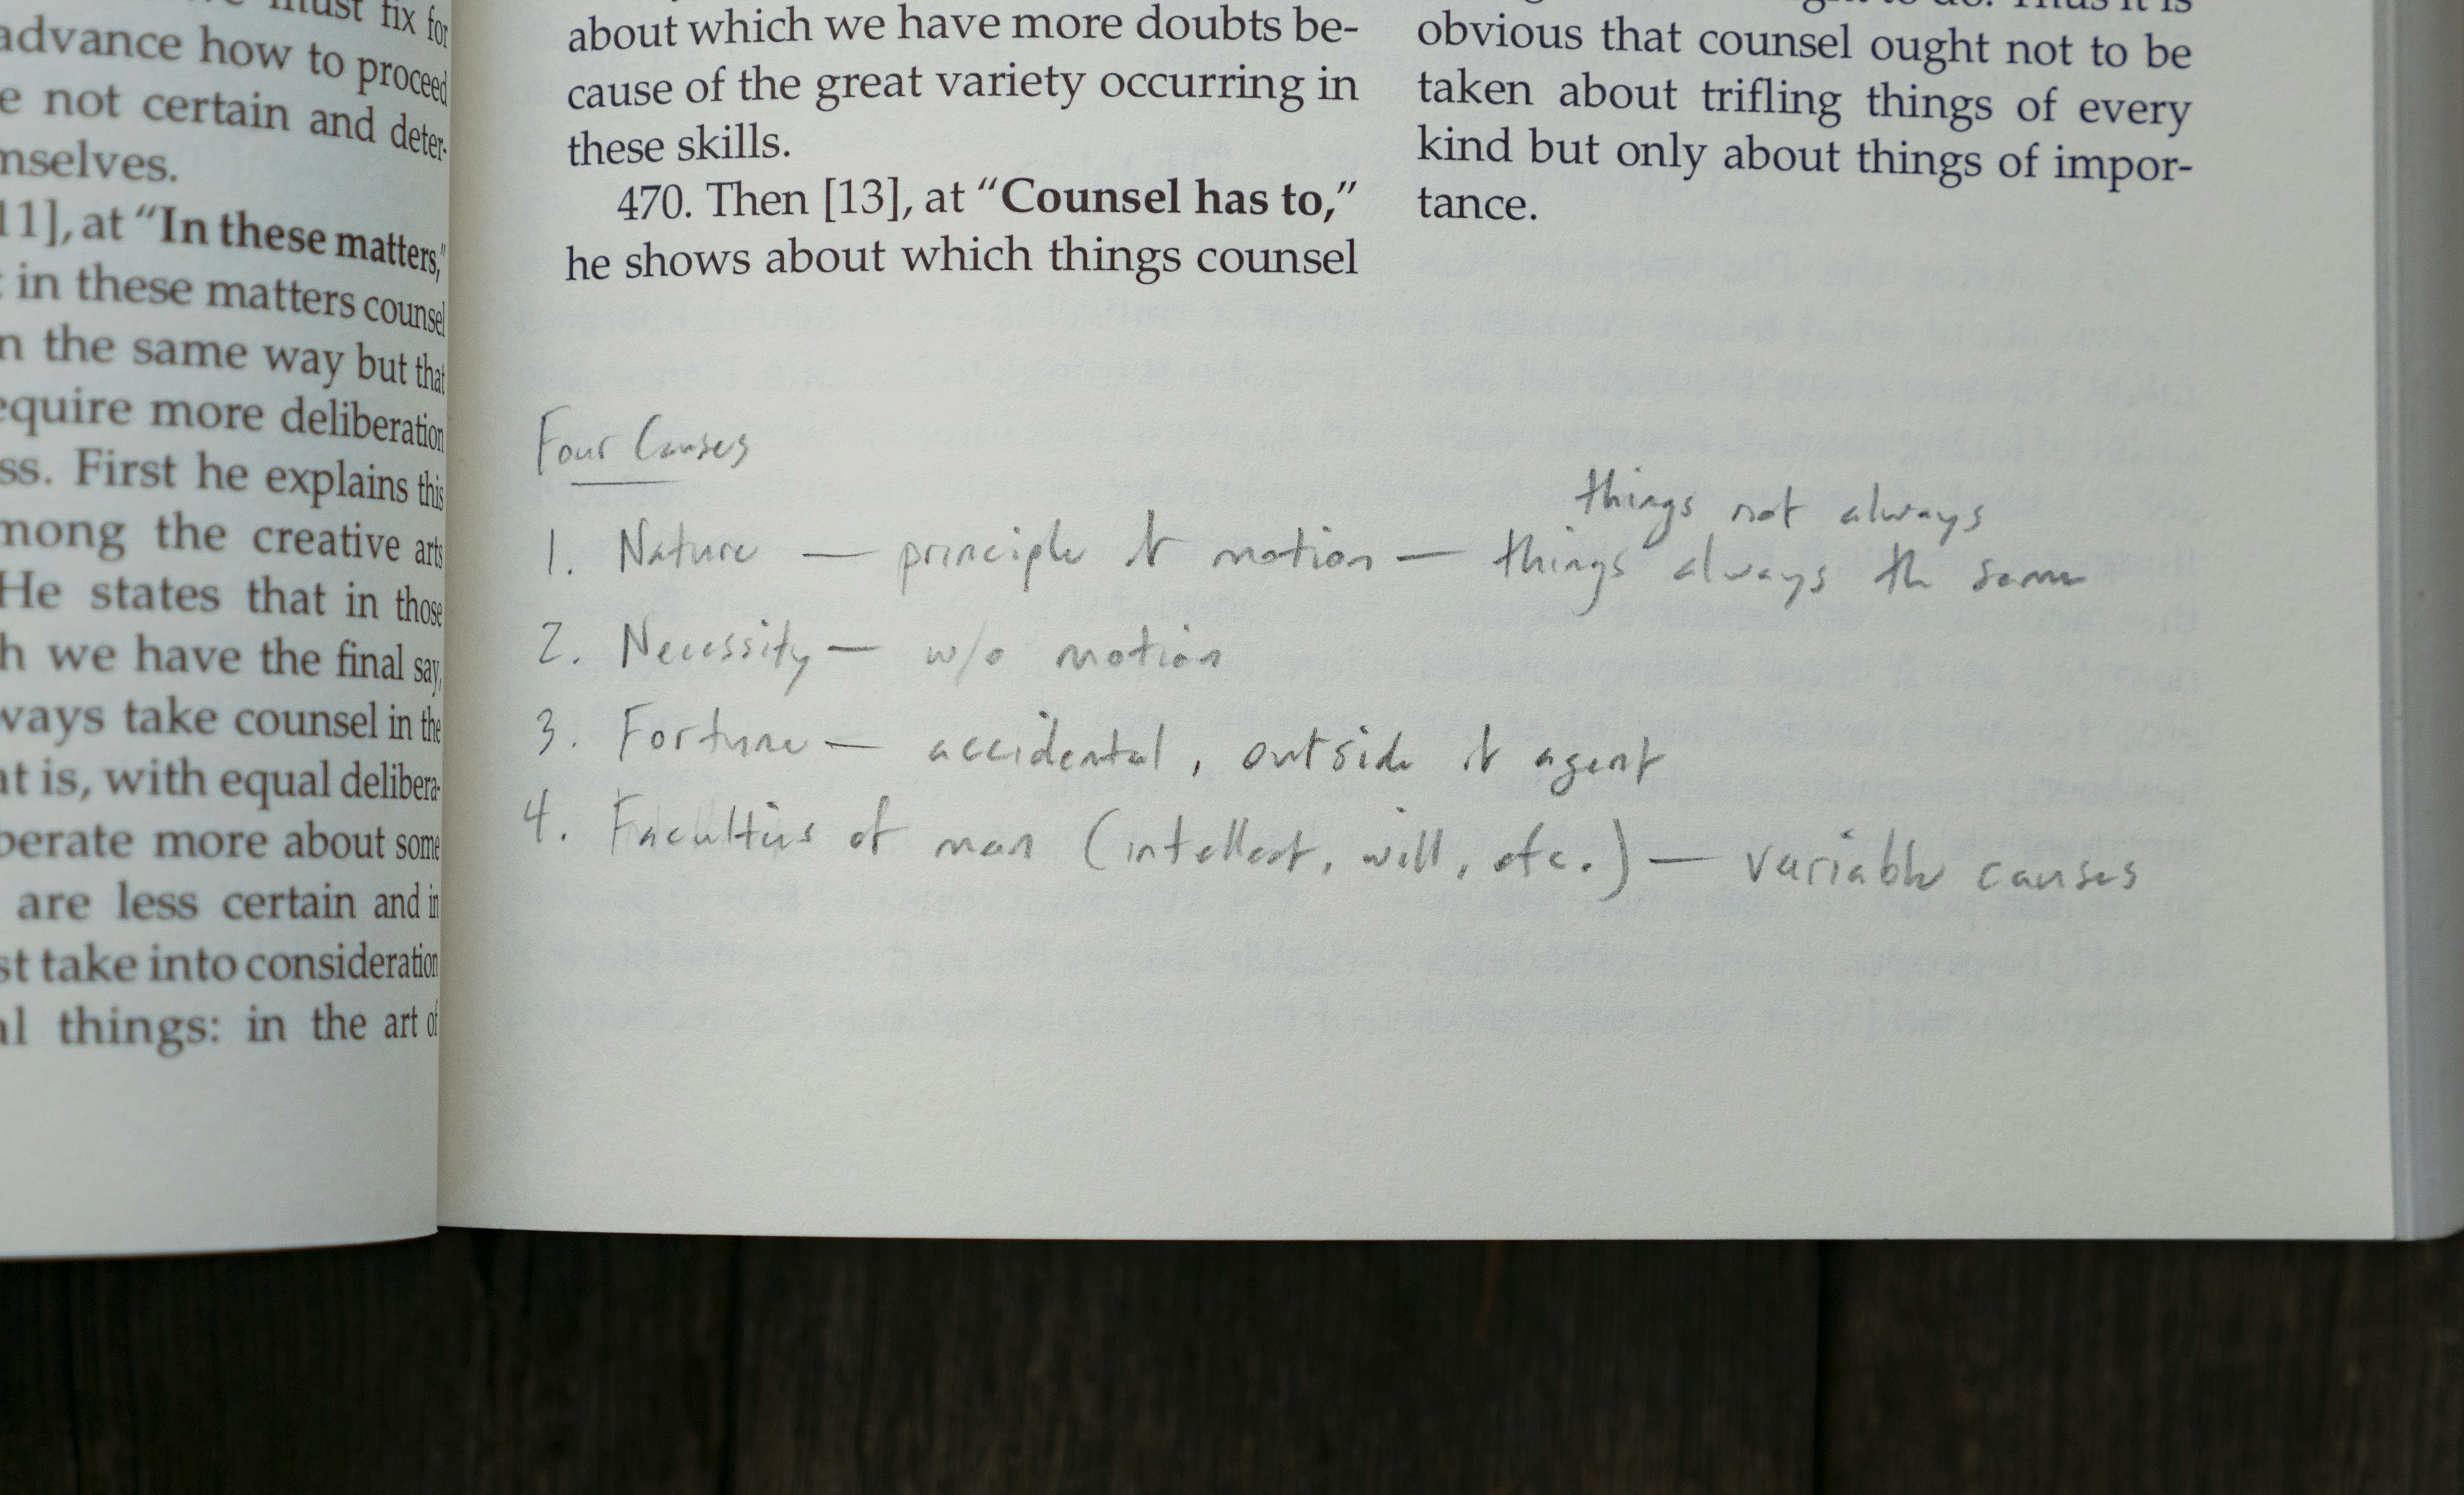 must fix for
advance how to proceed
e not certain and deter-
mselves.
11], at “In these matters,”
in these matters counsel
n the same way but that
equire more deliberation
ss. First he explains this
mong the creative arts
He states that in those
h we have the final say,
ways take counsel in the
at is, with equal delibera-
berate more about some
are less certain and in
st take into consideration
al things: in the art of
about which we have more doubts be-
cause of the great variety occurring in
these skills.
470. Then [13], at “Counsel has to,”
he shows about which things counsel
to do. Thus it is
obvious that counsel ought not to be
taken about trifling things of every
kind but only about things of impor-
tance.
Four Causes
things not always
1. Nature — principle of motion — things always the same
2. Necessity — w/o motion
3. Fortune — accidental, outside of agent
4. Faculties of man (intellect, will, etc.) — variable causes